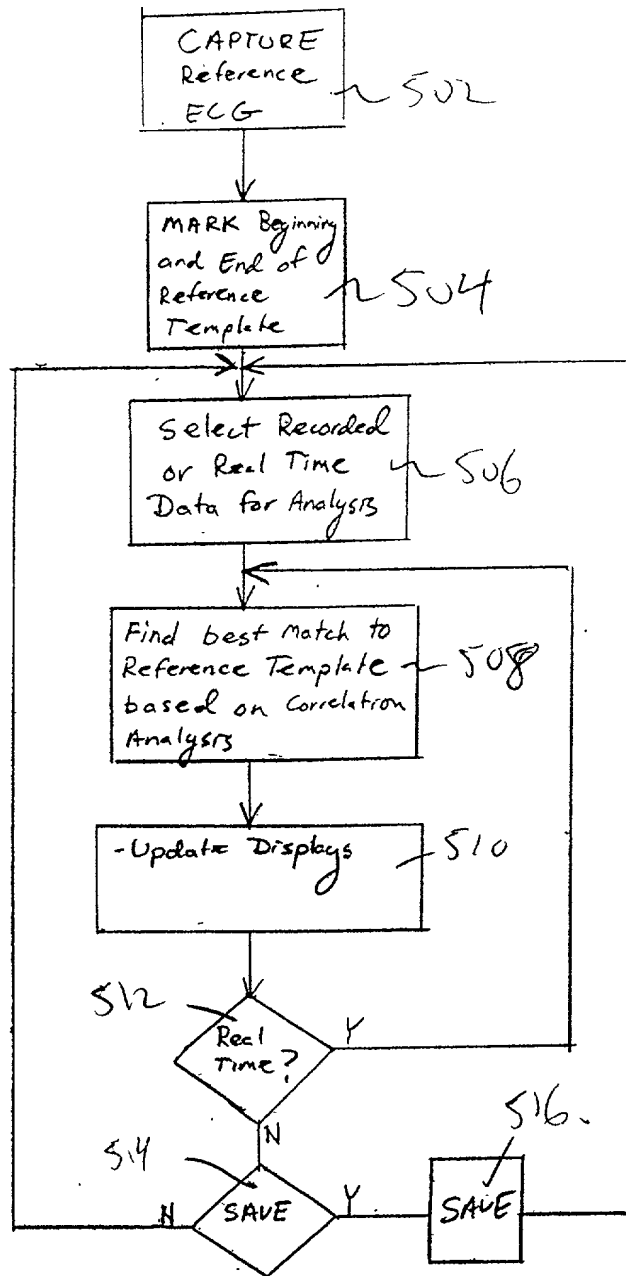 CAPTURE
Reference
ECG
502
MARK Beginning
and End of
Reference
Template
504
Select Recorded
or Real Time
Data for Analysis
506
Find best Match to
Reference Template
based on Correlation
Analysis
508
-Update Displays
510
512
Real
Time?
Y
N
514
SAVE
N
Y
SAVE
516.